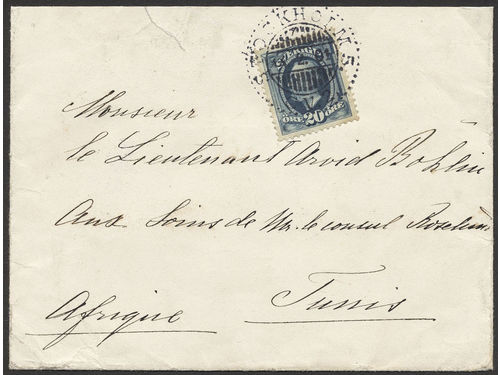 STOCKHOLM 5
SVERIGE
ÖRE 20 ÖRE
Monsieur
le Lieutenant Arvid Bohlin
Aux Soins de Mr. le consul
Tunis
Afrique